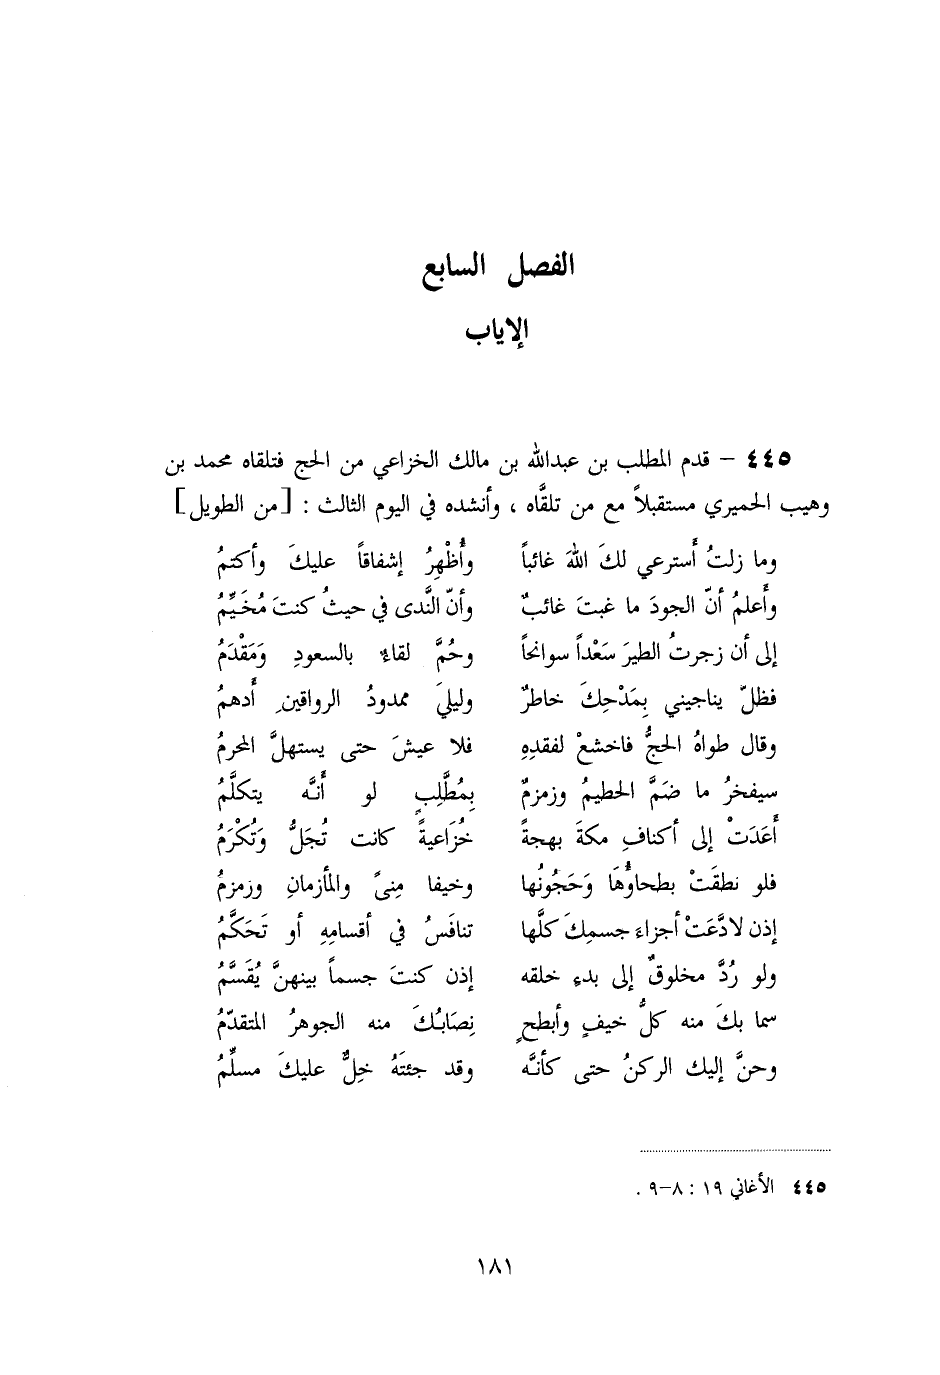 الفصل السابع
الإياب
٤٤٥ – قدم المطلب بن عبدالله بن مالك الخزاعي من الحج فتلقاه محمد بن
وهيب الحميري مستقبلاً مع من تلقَّاه ، وأنشده في اليوم الثالث : [من الطويل]
وما زلتُ أَسترعي لكَ اللهَ غائباً وأُظْهِرُ إشفاقاً عليكَ وأكتمُ
وأَعلمُ أنّ الجودَ ما غبتَ غائبٌ وأنّ النَّدى في حيثُ كنتَ مُخَيِّمُ
إلى أن زجرتُ الطيرَ سَعْداً سوانحاً وحُمَّ لقاءٌ بالسعودِ وَمَقْدَمُ
فظلّ يناجيني بِمَدْحِكَ خاطرٌ وليليَ ممدودُ الرواقينِ أَدهمُ
وقال طواهُ الحجُّ فاخشعْ لفقدِهِ فلا عيشَ حتى يستهلَّ المحرمُ
سيفخرُ ما ضَمَّ الحطيمُ وزمزمٌ بِمُطَّلِبٍ لو أَنَّه يتكلَّمُ
أَعَدَتْ إلى أكنافِ مكةَ بهجةً خُزَاعيةً كانت تُجَلُّ وَتُكْرَمُ
فلو نطقَتْ بطحاؤُهَا وَحَجُونُها وخيفا مِنىً والمأزمانِ وزمزمُ
إذن لادَّعَتْ أجزاءَ جسمِكَ كلَّها تنافَسُ في أقسامِهِ أو تَحَكَّمُ
ولو رُدَّ مخلوقٌ إلى بدءِ خلقه إذن كنتَ جسماً بينهنَّ يُقَسَّمُ
سما بكَ منه كلُّ خيفٍ وأبطحٍ نِصَابُكَ منه الجوهرُ المتقدّمُ
وحنَّ إليك الركنُ حتى كأنَّه وقد جئتَهُ خِلٌّ عليكَ مسلِّمُ
٤٤٥ الأغاني ١٩ : ٨–٩ .
١٨١